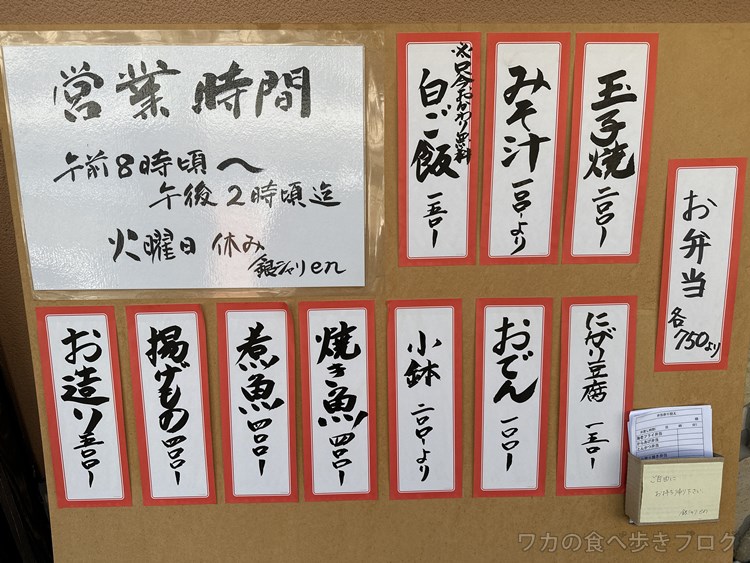 営業時間
午前8時頃〜
午後2時頃迄
火曜日休み
銀シャリen
玉子焼 二〇〇ー
みそ汁 一〇〇ーより
※只今おかわり無料
白ご飯 一五〇ー
お弁当 各750より
にがり豆腐 一五〇ー
おでん 一〇〇ー
小鉢 二〇〇ーより
焼き魚 四〇〇ー
煮魚 四〇〇ー
揚げもの 四〇〇ー
お造り 五〇〇ー
ご自由に
お持ち帰り下さい
ワカの食べ歩きブログ